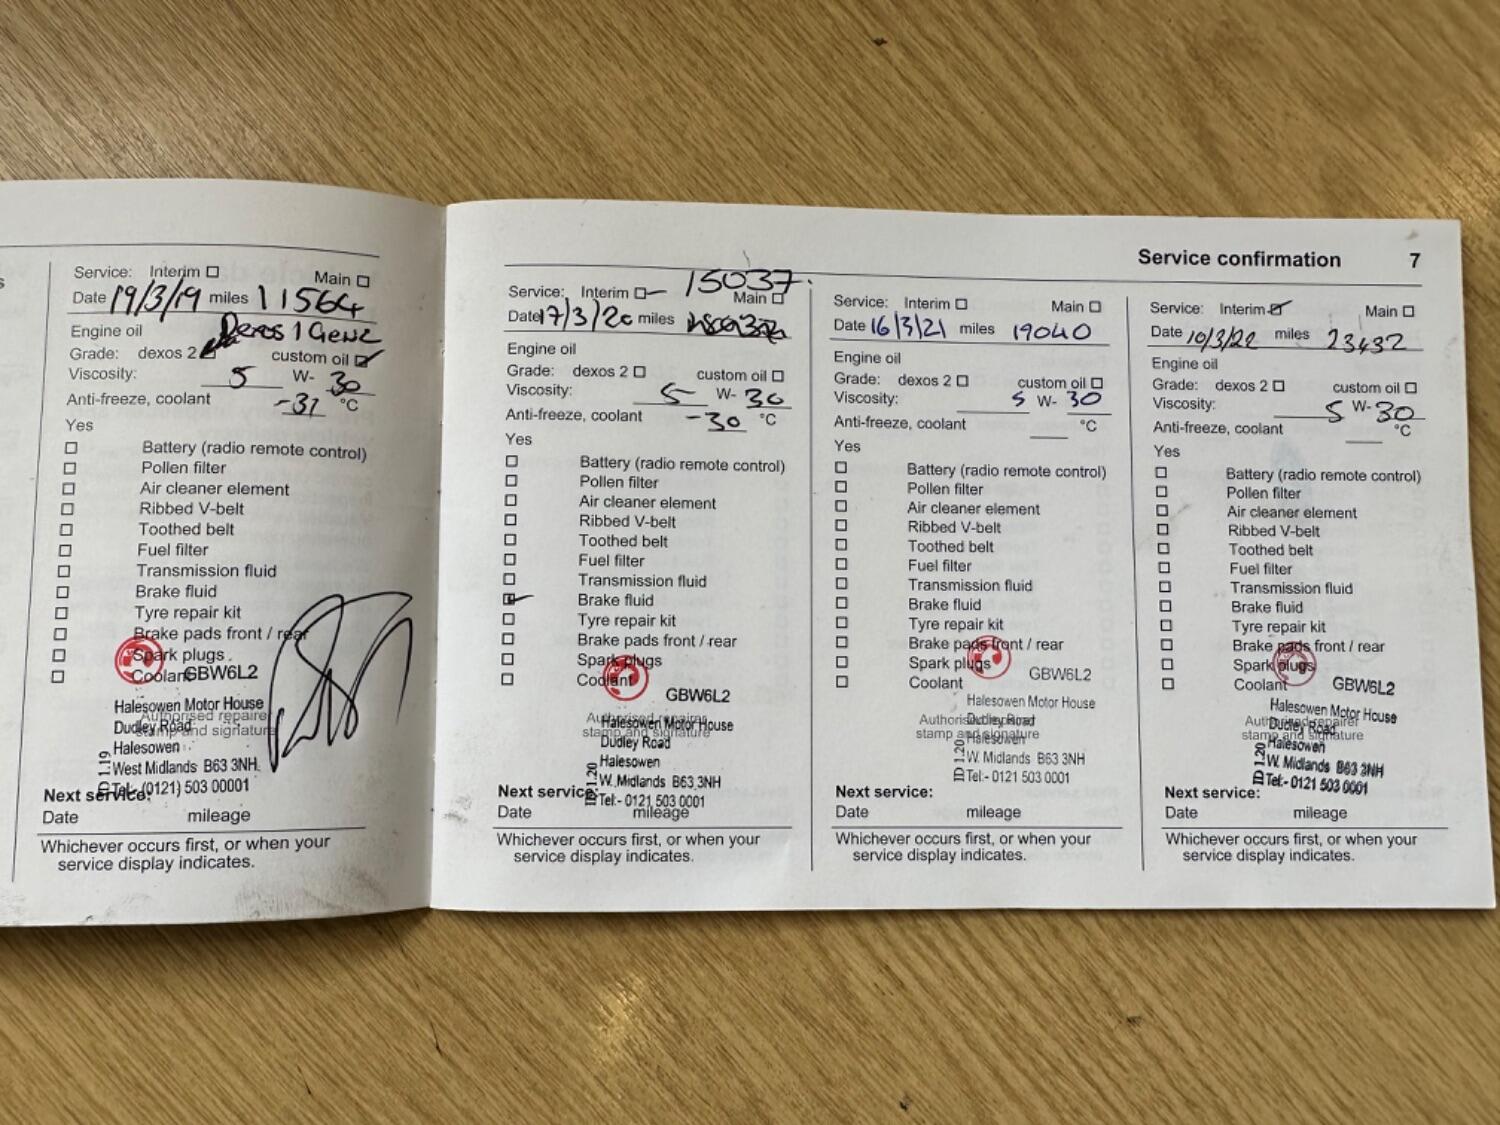 Service confirmation 7
Service: Interim Main
Date 19/3/19 miles 11564
Engine oil Dexos 1 Gen2
Grade: dexos 2 custom oil
Viscosity: 5 W- 30
Anti-freeze, coolant -31 °C
Yes
Battery (radio remote control)
Pollen filter
Air cleaner element
Ribbed V-belt
Toothed belt
Fuel filter
Transmission fluid
Brake fluid
Tyre repair kit
Brake pads front / rear
Spark plugs
Coolant
GBW6L2
Authorised repairer
stamp and signature
Halesowen Motor House
Dudley Road
Halesowen
West Midlands B63 3NH
Tel:- (0121) 503 00001
ID 1.19
Next service:
Date mileage
Whichever occurs first, or when your
service display indicates.
15037.
Service: Interim Main
Date 17/3/20 miles
Engine oil
Grade: dexos 2 custom oil
Viscosity: 5 W- 30
Anti-freeze, coolant -30 °C
Yes
Battery (radio remote control)
Pollen filter
Air cleaner element
Ribbed V-belt
Toothed belt
Fuel filter
Transmission fluid
Brake fluid
Tyre repair kit
Brake pads front / rear
Spark plugs
Coolant
GBW6L2
Authorised repairer
stamp and signature
Halesowen Motor House
Dudley Road
Halesowen
W. Midlands B63 3NH
Tel:- 0121 503 0001
ID 1.20
Next service:
Date mileage
Whichever occurs first, or when your
service display indicates.
Service: Interim Main
Date 16/3/21 miles 19040
Engine oil
Grade: dexos 2 custom oil
Viscosity: 5 W- 30
Anti-freeze, coolant °C
Yes
Battery (radio remote control)
Pollen filter
Air cleaner element
Ribbed V-belt
Toothed belt
Fuel filter
Transmission fluid
Brake fluid
Tyre repair kit
Brake pads front / rear
Spark plugs
Coolant
GBW6L2
Authorised repairer
stamp and signature
Halesowen Motor House
Dudley Road
Halesowen
W. Midlands B63 3NH
Tel:- 0121 503 0001
ID 1.20
Next service:
Date mileage
Whichever occurs first, or when your
service display indicates.
Service: Interim Main
Date 10/3/22 miles 23432
Engine oil
Grade: dexos 2 custom oil
Viscosity: 5 W- 30
Anti-freeze, coolant °C
Yes
Battery (radio remote control)
Pollen filter
Air cleaner element
Ribbed V-belt
Toothed belt
Fuel filter
Transmission fluid
Brake fluid
Tyre repair kit
Brake pads front / rear
Spark plugs
Coolant
GBW6L2
Authorised repairer
stamp and signature
Halesowen Motor House
Dudley Road
Halesowen
W. Midlands B63 3NH
Tel:- 0121 503 0001
ID 1.20
Next service:
Date mileage
Whichever occurs first, or when your
service display indicates.